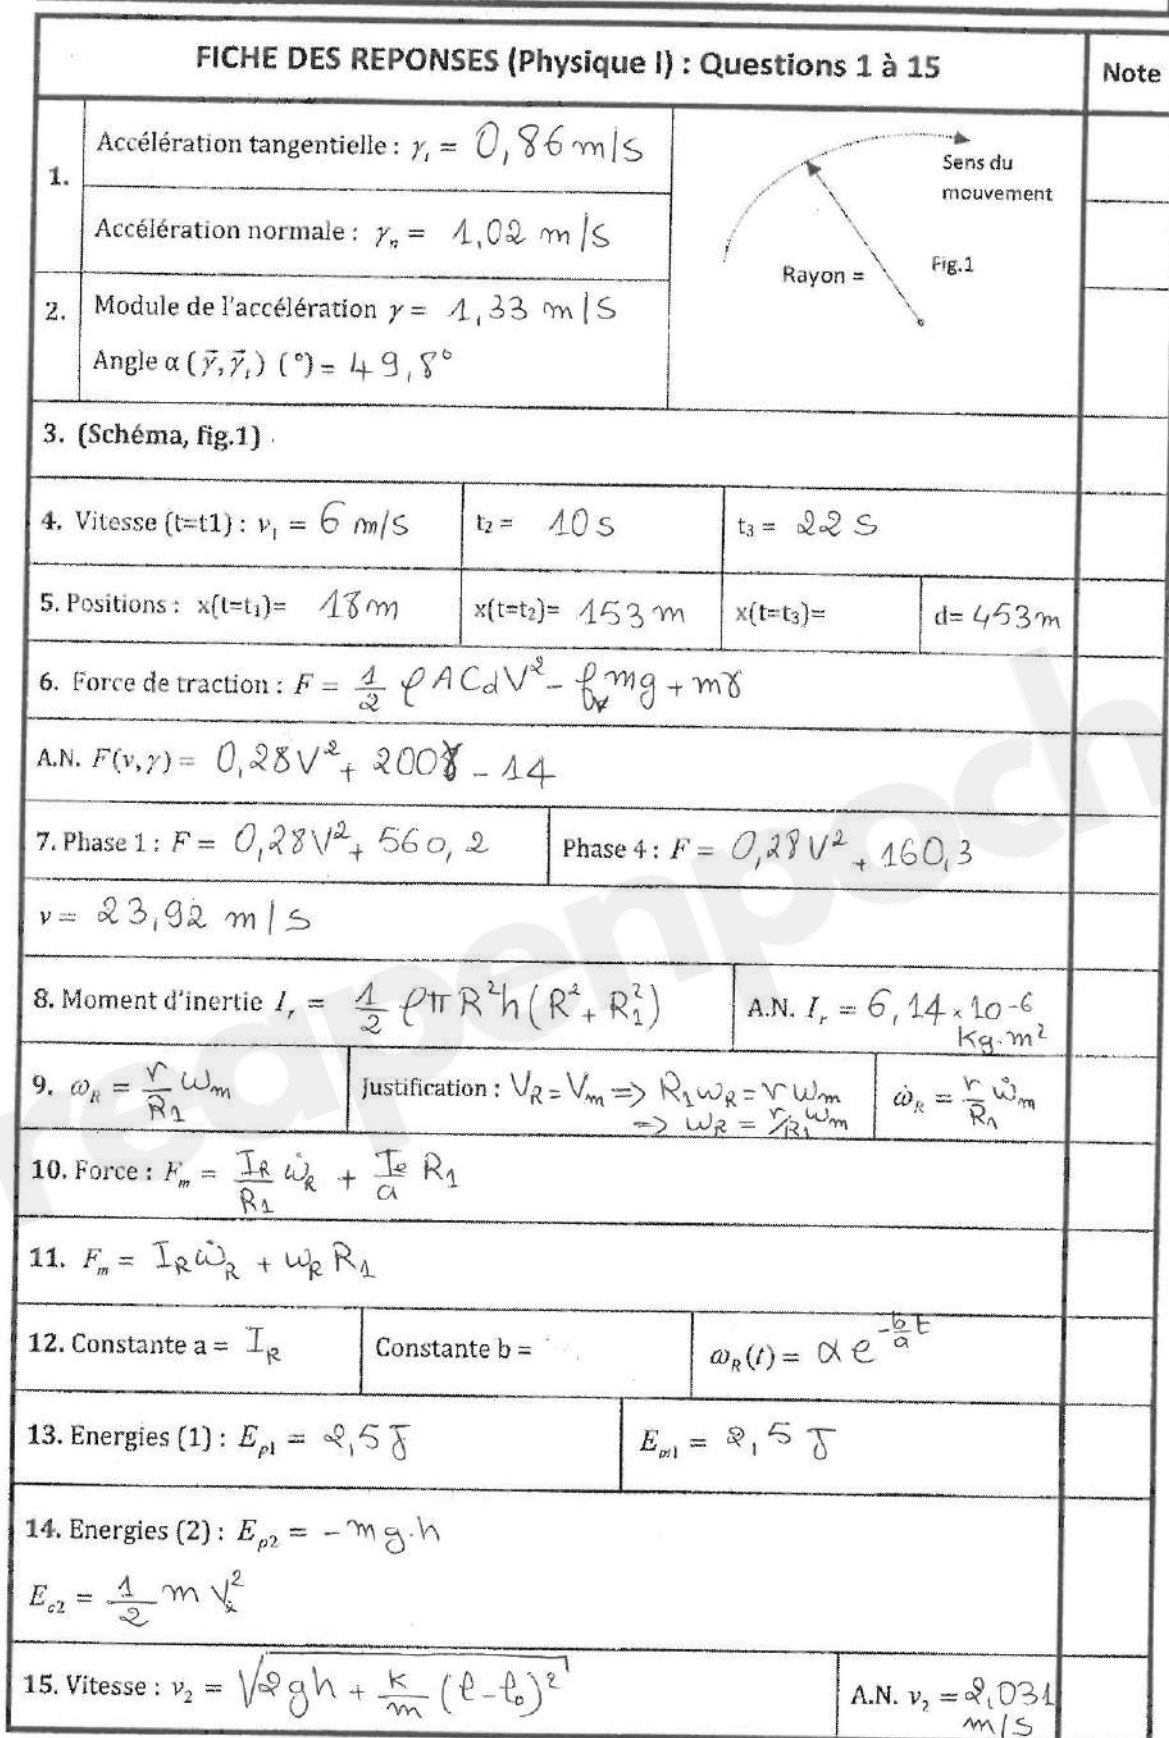 FICHE DES REPONSES (Physique I) : Questions 1 à 15
Note
1.
Accélération tangentielle : γt = 0,86 m/s
Accélération normale : γn = 1,02 m/s
Sens du
mouvement
Rayon =
Fig.1
2.
Module de l'accélération γ = 1,33 m/s
Angle α (γ⃗, γ⃗t) (°) = 49,8°
3. (Schéma, fig.1)
4. Vitesse (t=t1) : v1 = 6 m/s
t2 = 10 s
t3 = 22 s
5. Positions : x(t=t1)= 18m
x(t=t2)= 153 m
x(t=t3)=
d= 453m
6. Force de traction : F = 1/2 ρACdV² - frmg + mγ
A.N. F(v,γ) = 0,28V² + 200γ - 14
7. Phase 1 : F = 0,28V² + 560,2
Phase 4 : F = 0,28V² + 160,3
v = 23,92 m/s
8. Moment d'inertie Ir = 1/2 ρπR²h(R² + R1²)
A.N. Ir = 6,14×10-6
Kg.m²
9. ωR = r/R1 ωm
Justification : VR = Vm => R1ωR = rωm
=> ωR = r/R1 ωm
ω̇R = r/R1 ω̇m
10. Force : Fm = IR/R1 ω̇R + Te/a R1
11. Fm = IRω̇R + ωRR1
12. Constante a = IR
Constante b =
ωR(t) = αe^(-b/a t)
13. Energies (1) : Ep1 = 2,5 J
Em1 = 2,5 J
14. Energies (2) : Ep2 = -mg.h
Ec2 = 1/2 m V2²
15. Vitesse : v2 = √(2gh + K/m (l-l0)²)
A.N. v2 = 2,031
m/s
reapenpoch